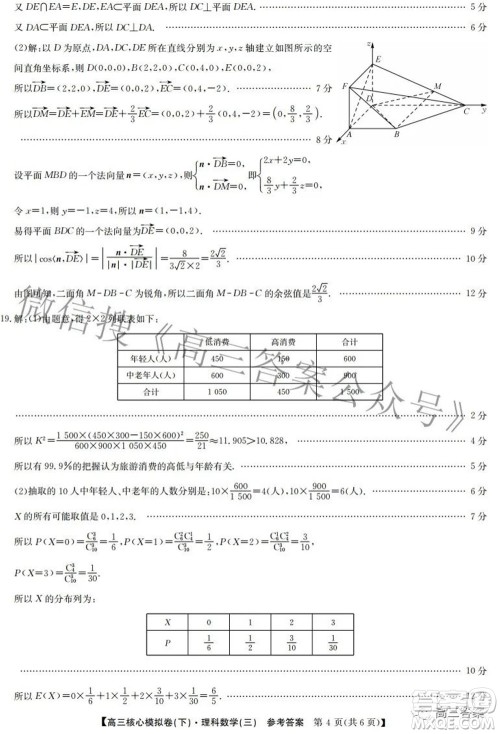 又 DE∩EA=E, DE,EA⊂平面 DEA,所以 DC⊥平面 DEA. 5 分
又 DA⊂平面 DEA,所以 DC⊥DA. 6 分
(2)解:以 D 为原点,DA,DC,DE 所在直线分别为 x,y,z 轴建立如图所示的空
间直角坐标系,则 D(0,0,0),B(2,2,0),C(0,4,0),E(0,0,2),
所以DB=(2,2,0),DE=(0,0,2),EC=(0,4,-2). 7 分
所以DM=DE+EM=DE+2/3EC=(0,0,2)+2/3(0,4,-2)=(0,8/3,2/3).
8 分
z
E
F
M
D
A
B
C
y
x
设平面 MBD 的一个法向量 n=(x,y,z),则{n·DB=0, n·DM=0, 即{2x+2y=0, 8/3y+2/3z=0.
令 x=1,则 y=-1,z=4,所以 n=(1,-1,4).
易得平面 BDC 的一个法向量为DE=(0,0,2). 9 分
所以|cos⟨n,DE⟩|=|n·DE/|n||DE||=8/(3√2×2)=2√2/3. 10 分
由图可知,二面角 M-DB-C 为锐角,所以二面角 M-DB-C 的余弦值是2√2/3. 12 分
19.解:(1)由题意,得 2×2 列联表如下:
低消费 高消费 合计
年轻人(人) 450 150 600
中老年人(人) 600 300 900
合计 1 050 450 1 500
2 分
所以 K²=1 500×(450×300-150×600)²/(600×900×1 050×450)=250/21≈11.905>10.828, 4 分
所以有 99.9%的把握认为旅游消费的高低与年龄有关. 5 分
(2)抽取的 10 人中年轻人、中老年的人数分别是:10×600/1500=4(人),10×900/1500=6(人). 6 分
X 的所有可能取值是 0,1,2,3. 7 分
所以 P(X=0)=C₆³/C₁₀³=1/6,P(X=1)=C₄¹C₆²/C₁₀³=1/2,P(X=2)=C₄²C₆¹/C₁₀³=3/10,
P(X=3)=C₄³/C₁₀³=1/30.
所以 X 的分布列为:
X 0 1 2 3
P 1/6 1/2 3/10 1/30
10 分
所以 E(X)=0×1/6+1×1/2+2×3/10+3×1/30=6/5. 12 分
【高三核心模拟卷(下)·理科数学(三) 参考答案 第 4 页(共 6 页)】
微信搜《高三答案公众号》
高三答案